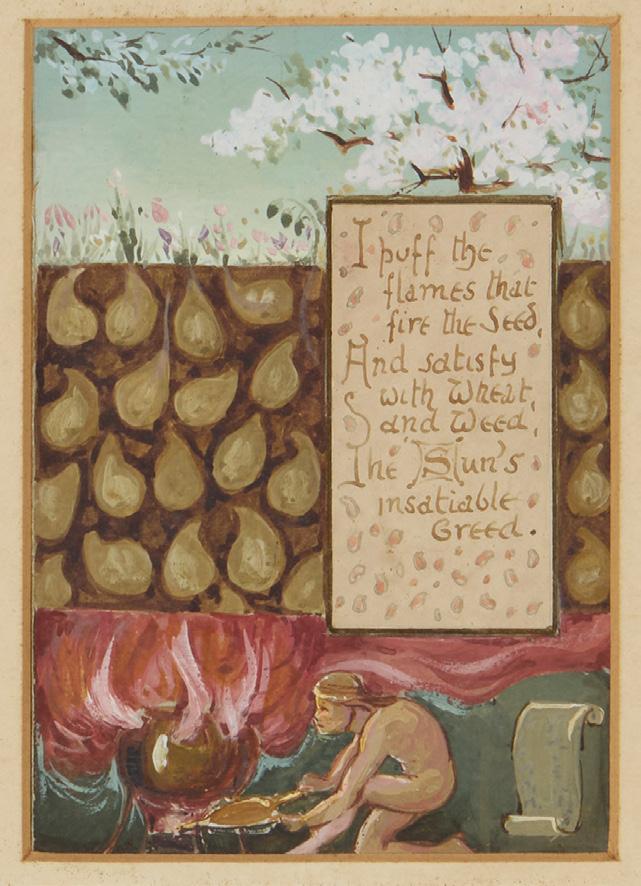 I puff the
flames that
fire the Seed,
And satisfy
with Wheat,
and Weed,
The Sun's
insatiable
Greed.